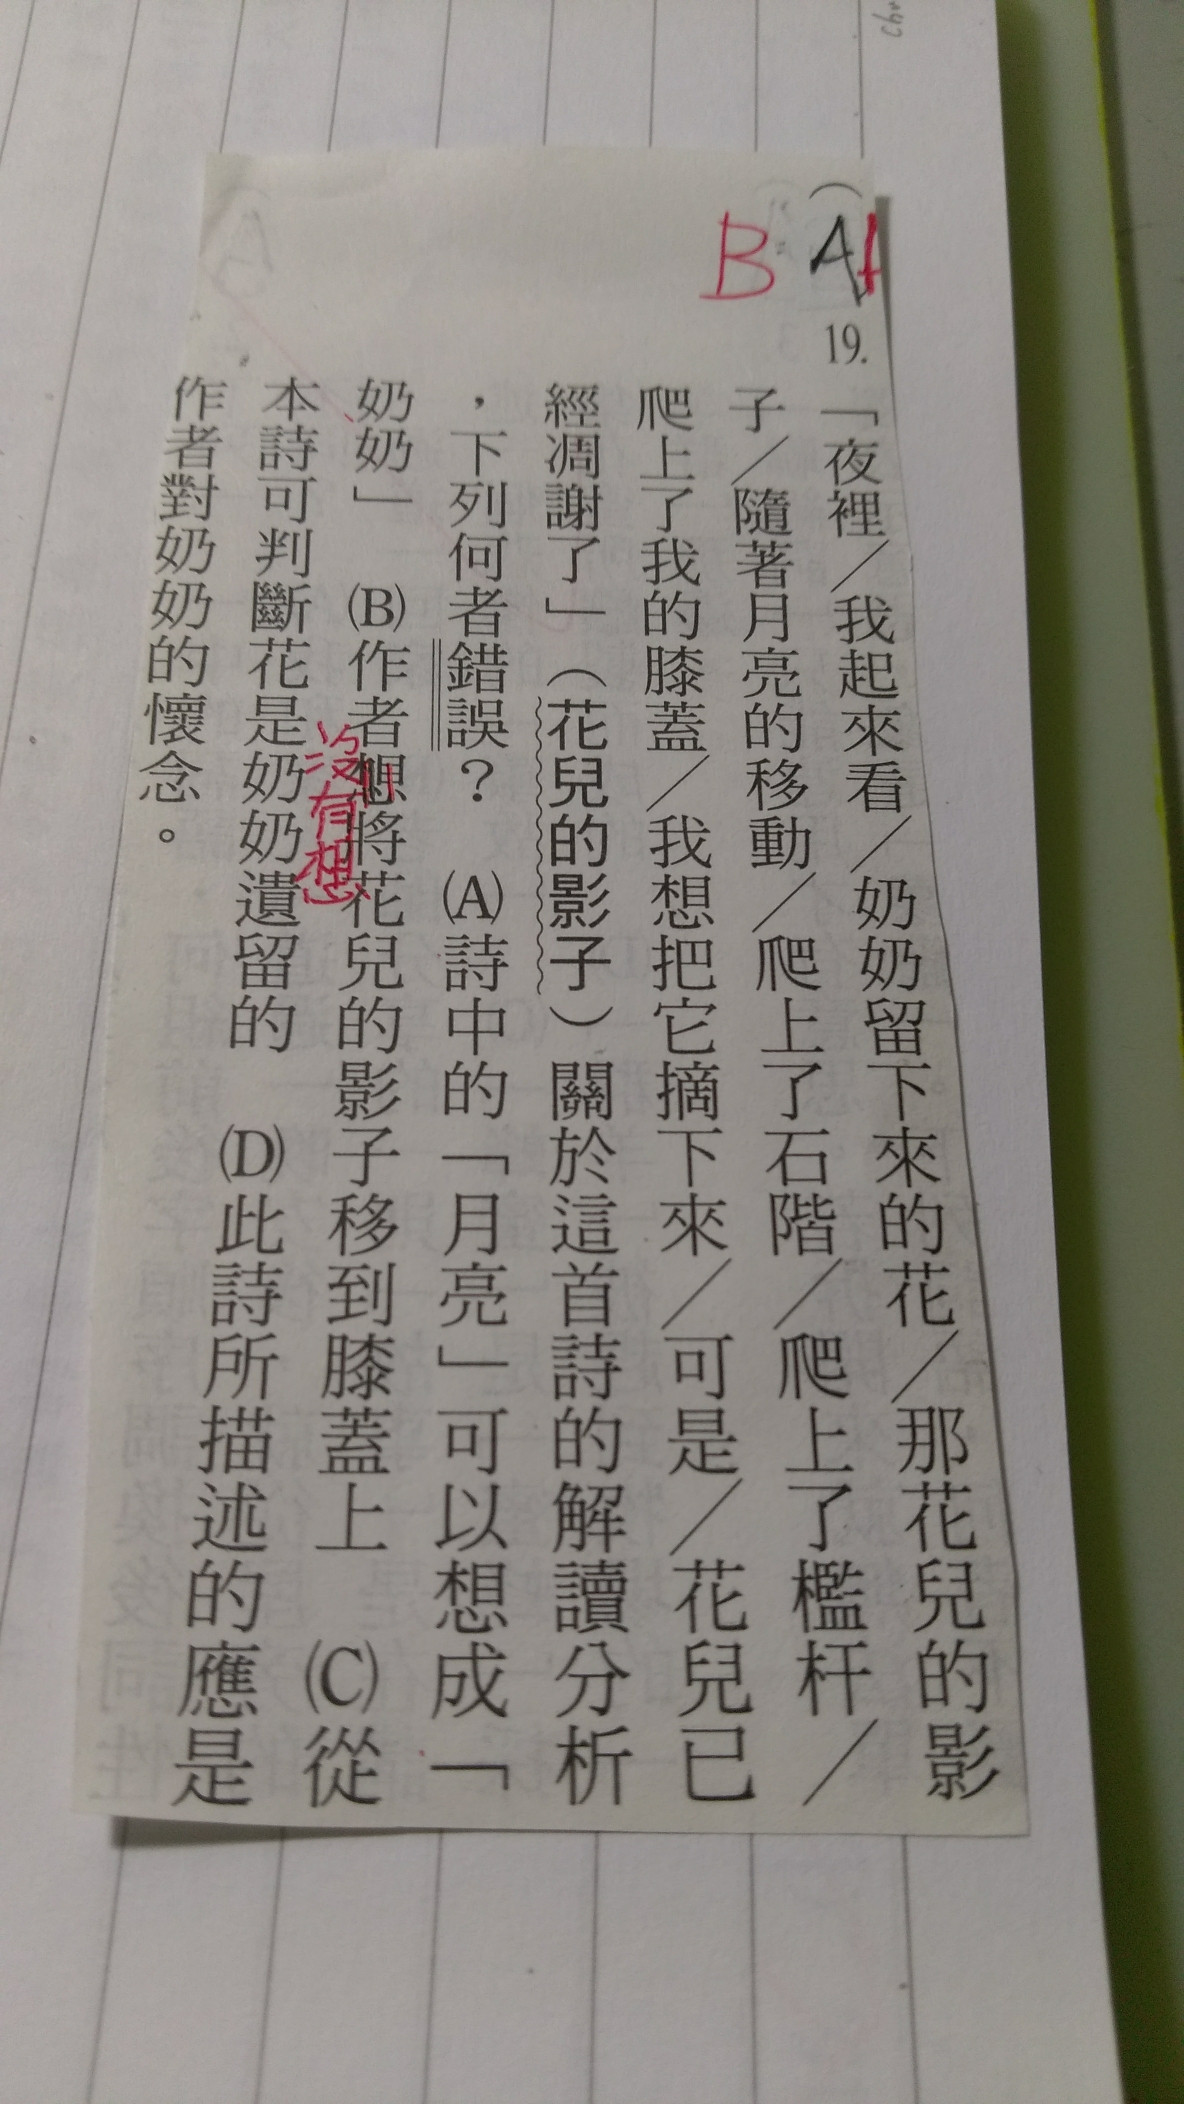 （A）19.「夜裡／我起來看／奶奶留下來的花／那花兒的影
B
子／隨著月亮的移動／爬上了石階／爬上了檻杆／
爬上了我的膝蓋／我想把它摘下來／可是／花兒已
經凋謝了」（花兒的影子）關於這首詩的解讀分析
，下列何者錯誤？　(A)詩中的「月亮」可以想成「
奶奶」　(B)作者想將花兒的影子移到膝蓋上　(C)從
沒有想
本詩可判斷花是奶奶遺留的　(D)此詩所描述的應是
作者對奶奶的懷念。